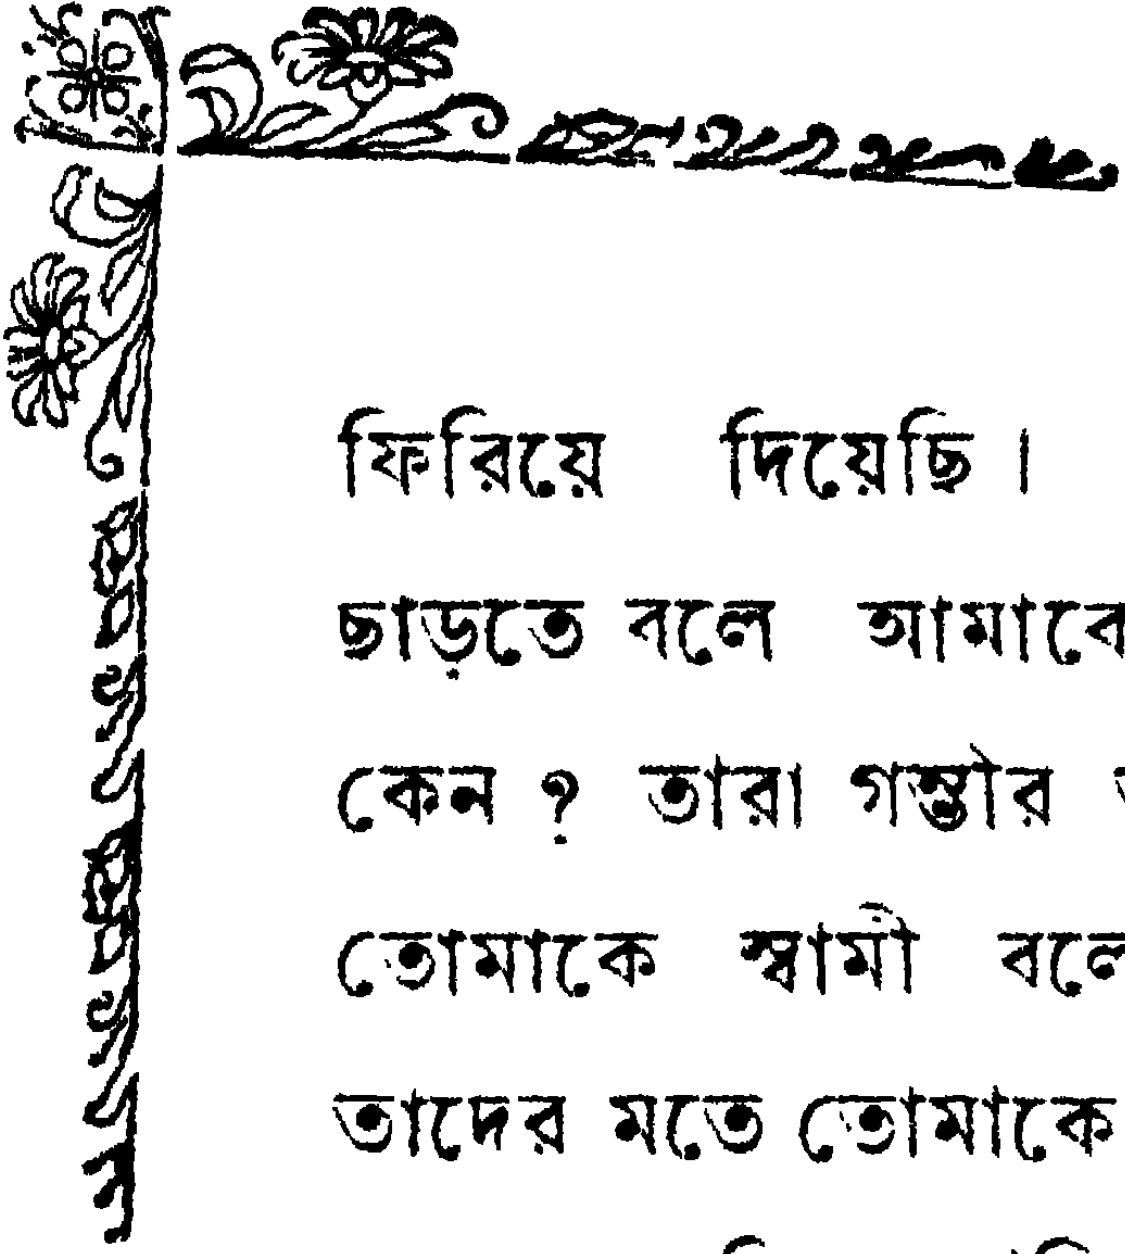 ফিরিয়ে দিয়েছি ।
ছাড়তে বলে আমাকে
কেন ? তারা গম্ভীর
তোমাকে স্বামী বলে
তাদের মতে তোমাকে